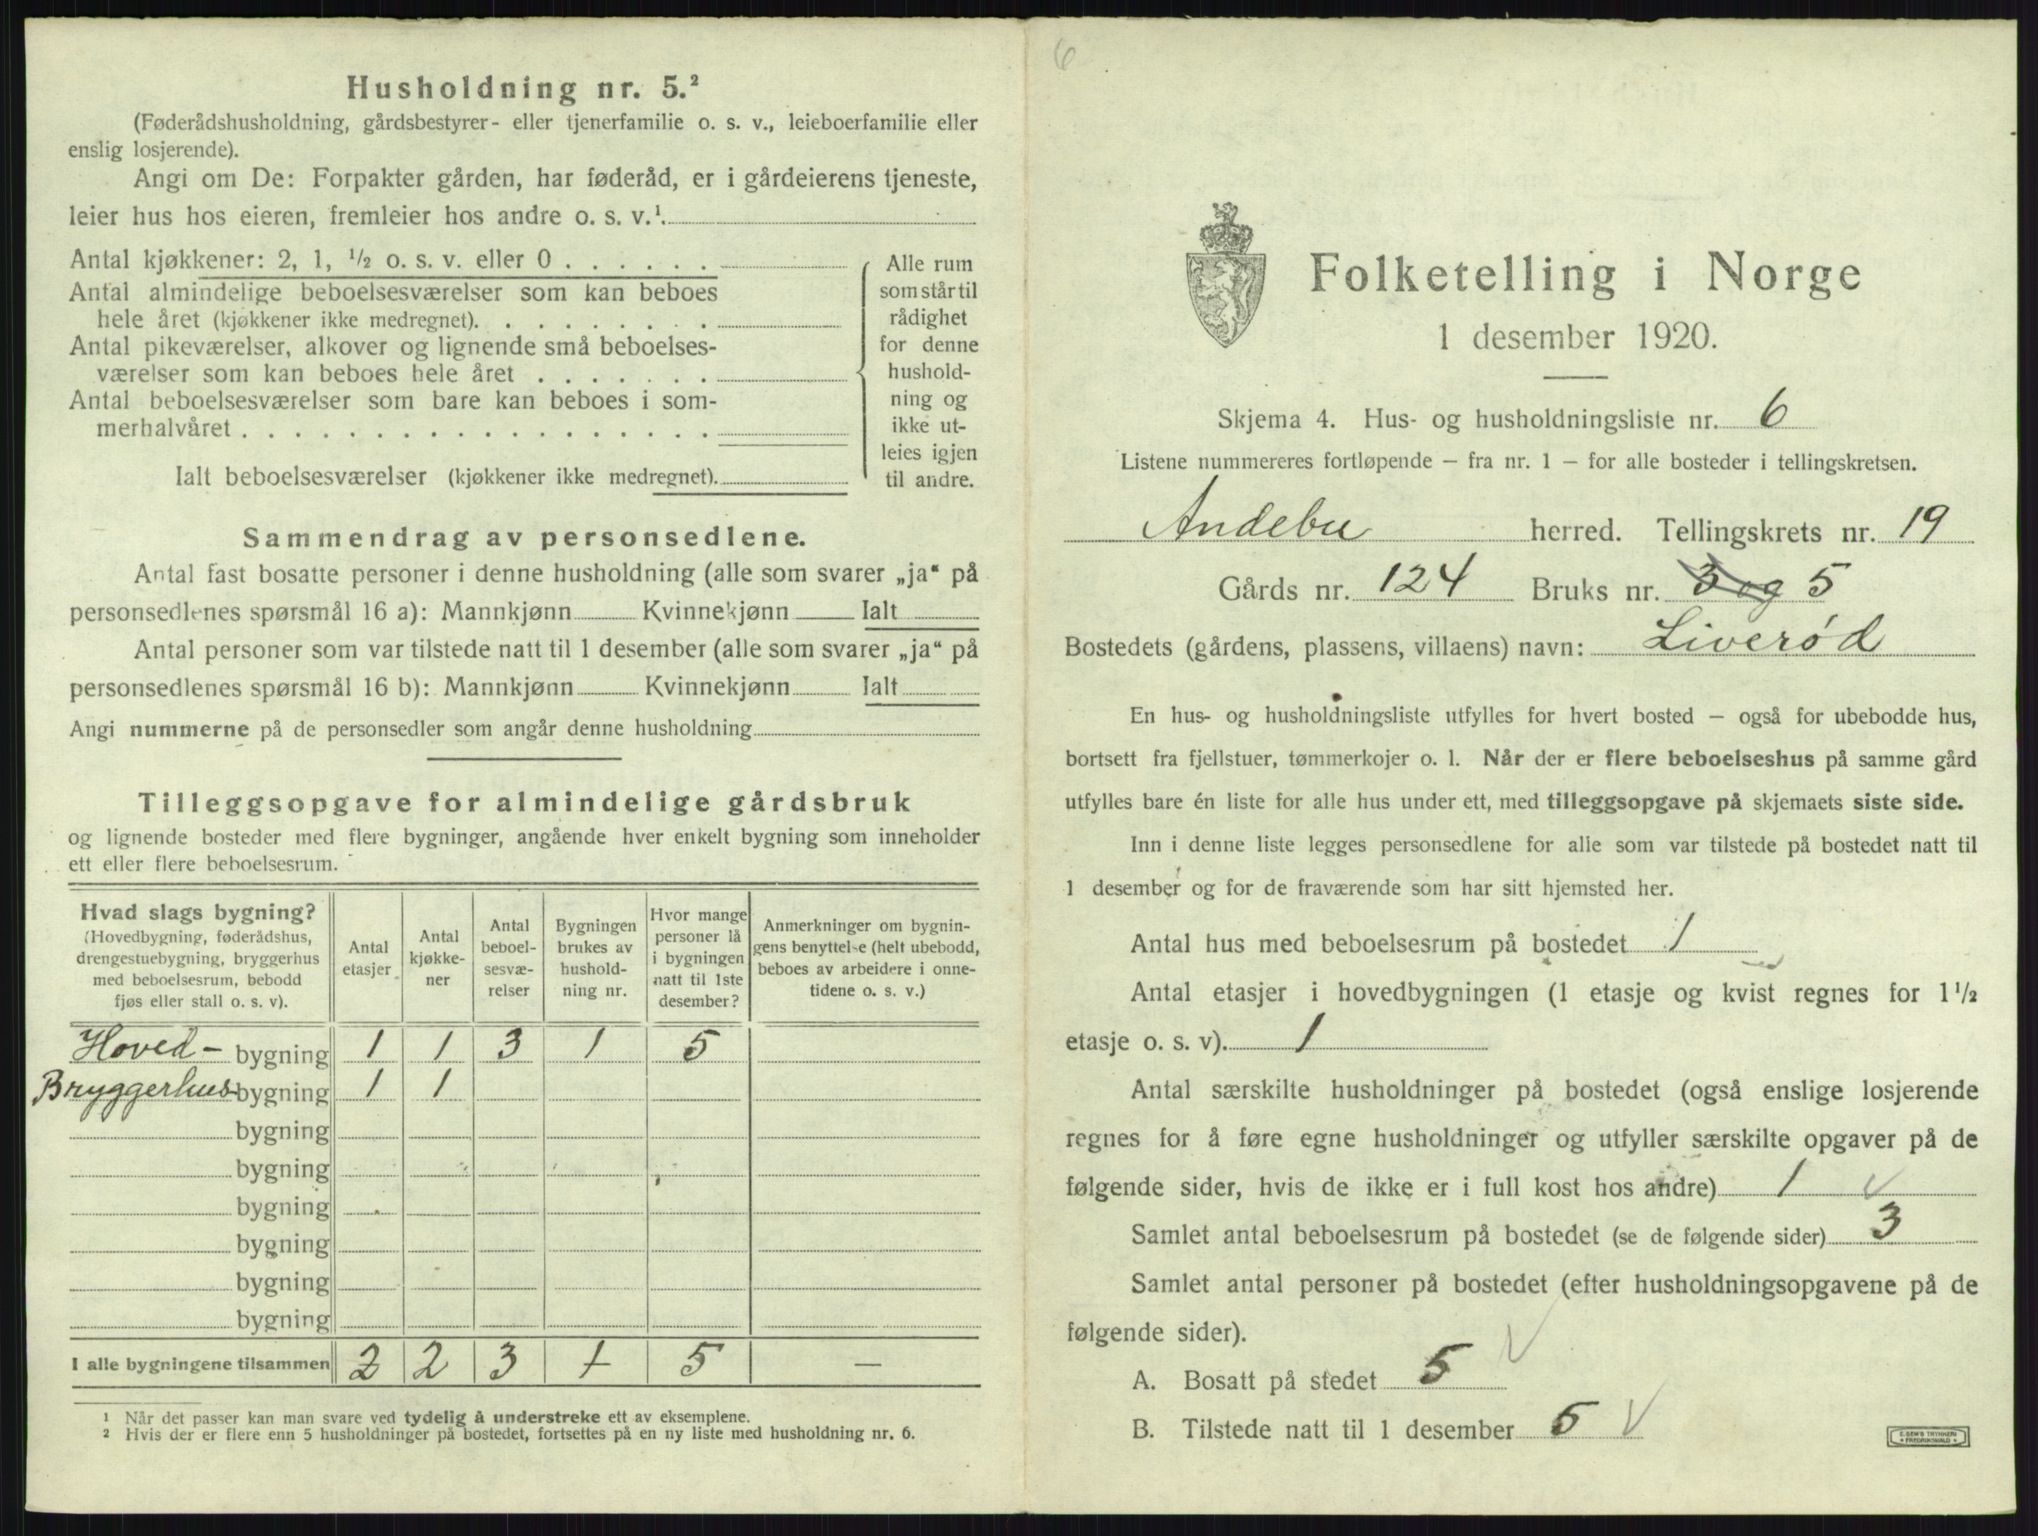 Husholdning nr. 5.²
(Føderådshusholdning, gårdsbestyrer- eller tjenerfamilie o. s. v., leieboerfamilie eller
enslig losjerende).
Angi om De: Forpakter gården, har føderåd, er i gårdeierens tjeneste,
leier hus hos eieren, fremleier hos andre o. s. v.¹
Antal kjøkkener: 2, 1, ½ o. s. v. eller 0 . . . . . .
Antal almindelige beboelsesværelser som kan beboes
hele året (kjøkkener ikke medregnet). . . . . . . . .
Antal pikeværelser, alkover og lignende små beboelses-
værelser som kan beboes hele året . . . . . . .
Antal beboelsesværelser som bare kan beboes i som-
merhalvåret . . . . . . . . . . . . . . . . . .
Ialt beboelsesværelser (kjøkkener ikke medregnet).
Alle rum
som står til
rådighet
for denne
hushold-
ning og
ikke ut-
leies igjen
til andre.
Sammendrag av personsedlene.
Antal fast bosatte personer i denne husholdning (alle som svarer „ja“ på
personsedlenes spørsmål 16 a): Mannkjønn Kvinnekjønn Ialt
Antal personer som var tilstede natt til 1 desember (alle som svarer „ja“ på
personsedlenes spørsmål 16 b): Mannkjønn Kvinnekjønn Ialt
Angi nummerne på de personsedler som angår denne husholdning
Tilleggsopgave for almindelige gårdsbruk
og lignende bosteder med flere bygninger, angående hver enkelt bygning som inneholder
ett eller flere beboelsesrum.
Hvad slags bygning?
(Hovedbygning, føderådshus,
drengestuebygning, bryggerhus
med beboelsesrum, bebodd
fjøs eller stall o. s. v).
Antal
etasjer
Antal
kjøkke-
ner
Antal
beboel-
sesvæ-
relser
Bygningen
brukes av
hushold-
ning nr.
Hvor mange
personer lå
i bygningen
natt til 1ste
desember?
Anmerkninger om bygnin-
gens benyttelse (helt ubebodd,
beboes av arbeidere i onne-
tidene o. s. v.)
Hoved- bygning 1 1 3 1 5
Bryggerhus- bygning 1 1
bygning
bygning
bygning
bygning
bygning
bygning
I alle bygningene tilsammen 2 2 3 1 5 —
¹ Når det passer kan man svare ved tydelig å understreke ett av eksemplene.
² Hvis der er flere enn 5 husholdninger på bostedet, fortsettes på en ny liste med husholdning nr. 6.
6
Folketelling i Norge
1 desember 1920.
Skjema 4. Hus- og husholdningsliste nr. 6
Listene nummereres fortløpende — fra nr. 1 — for alle bosteder i tellingskretsen.
Andebu herred. Tellingskrets nr. 19
Gårds nr. 124 Bruks nr. 3 og 5
Bostedets (gårdens, plassens, villaens) navn: Liverød
En hus- og husholdningsliste utfylles for hvert bosted — også for ubebodde hus,
bortsett fra fjellstuer, tømmerkojer o. l. Når der er flere beboelseshus på samme gård
utfylles bare én liste for alle hus under ett, med tilleggsopgave på skjemaets siste side.
Inn i denne liste legges personsedlene for alle som var tilstede på bostedet natt til
1 desember og for de fraværende som har sitt hjemsted her.
Antal hus med beboelsesrum på bostedet 1
Antal etasjer i hovedbygningen (1 etasje og kvist regnes for 1½
etasje o. s. v). 1
Antal særskilte husholdninger på bostedet (også enslige losjerende
regnes for å føre egne husholdninger og utfyller særskilte opgaver på de
følgende sider, hvis de ikke er i full kost hos andre) 1
Samlet antal beboelsesrum på bostedet (se de følgende sider) 3
Samlet antal personer på bostedet (efter husholdningsopgavene på de
følgende sider).
A. Bosatt på stedet 5
B. Tilstede natt til 1 desember 5